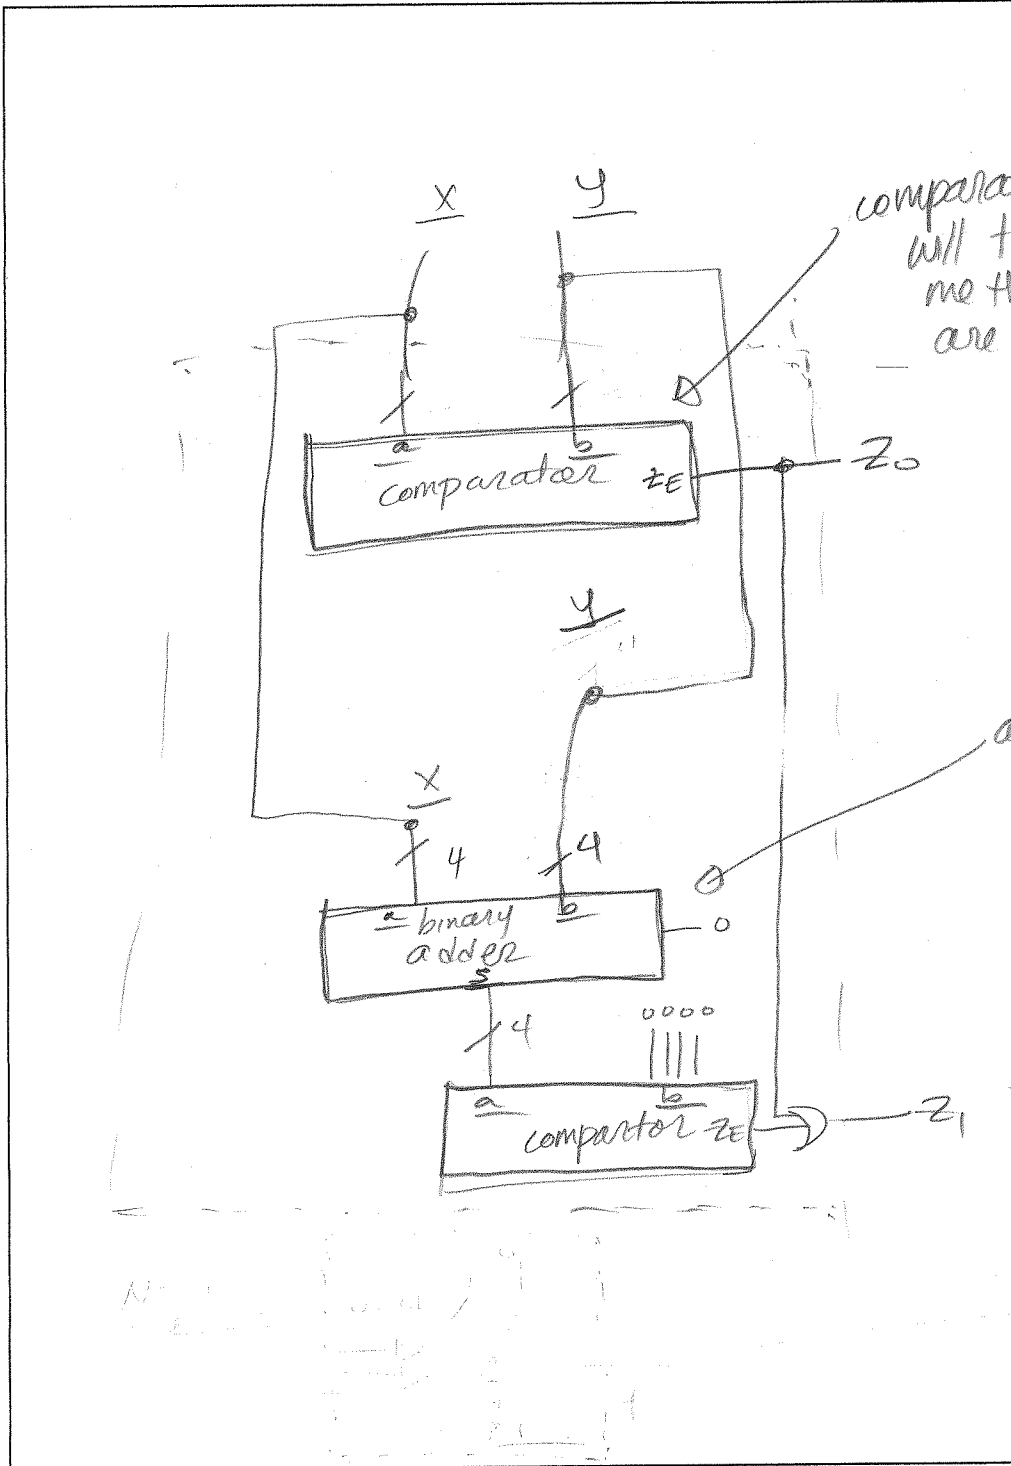 x
y
compara
will t
me th
are
a
b
comparator
zE
Z0
y
x
4
4
a
binary
b
adder
0
s
a
4
0000
a
b
compartor
ZE
Z1